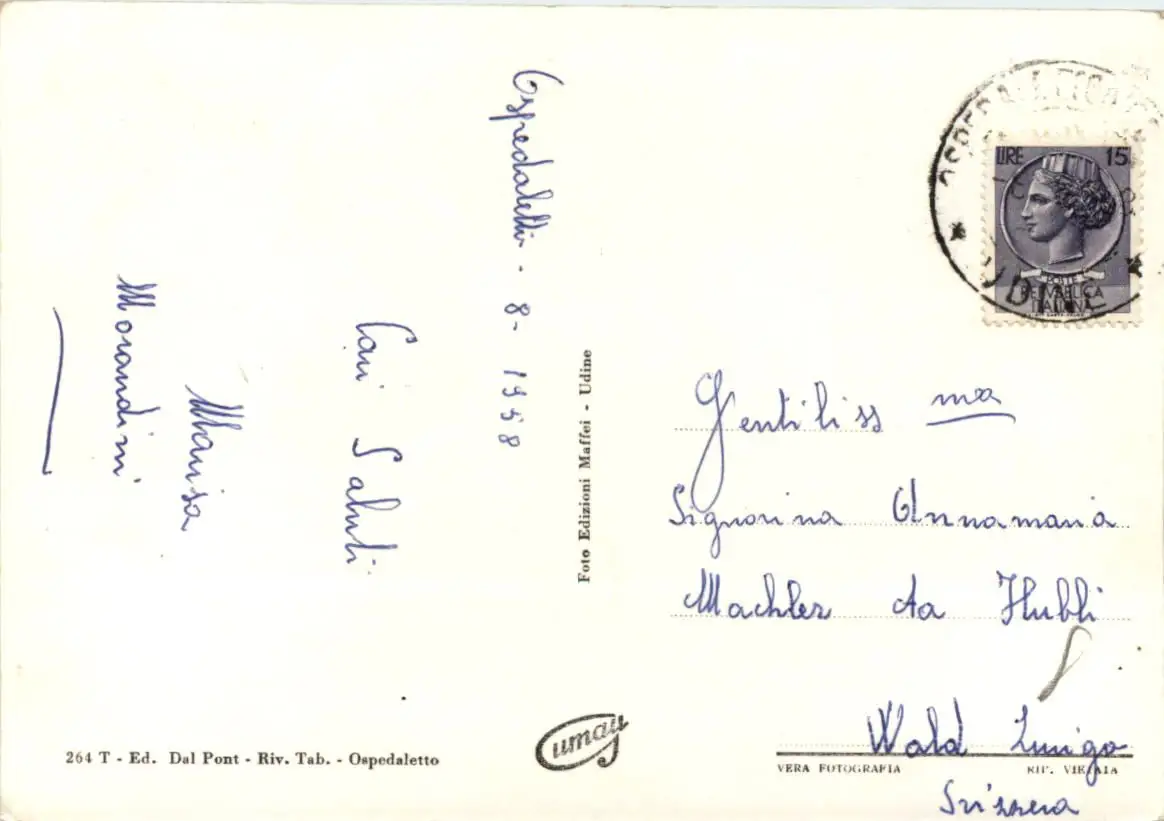 Ospedaletti - 8 - 1958
Cari Saluti
Marisa
Morandini
Foto Edizioni Maffei - Udine
264 T - Ed. Dal Pont - Riv. Tab. - Ospedaletto
LIRE 15
POSTE
REPVBBLICA
ITALIANA
UDINE
Gentiliss ma
Signorina Annamaria
Machler
Wald Zurigo
Svizzera
VERA FOTOGRAFIA
RIP. VIETATA